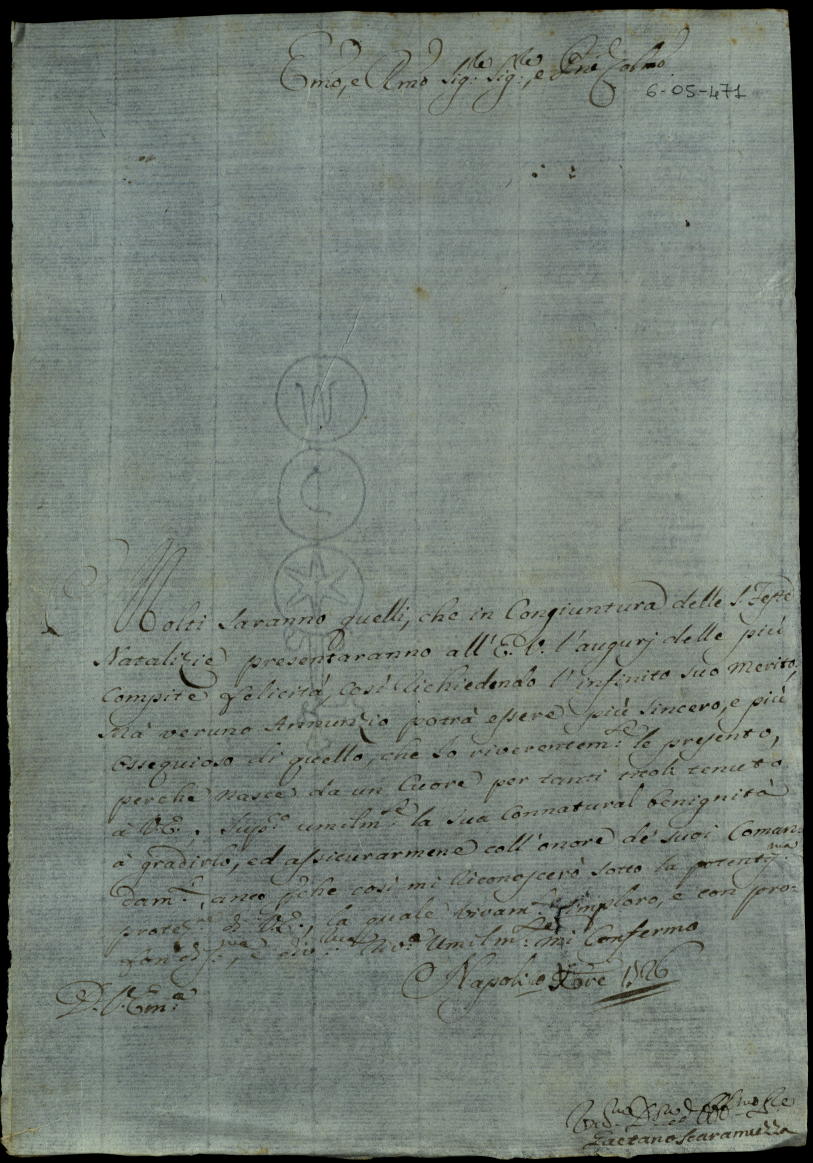 Emo, e Rmo Sig.re Sig.re, e Pne Colmo
6-05-471
W
C
Molti saranno quelli, che in Congiuntura delle S. Feste
Natalizie presentaranno all' E. V. l'augurj delle più
Compite felicità, così richiedendo l'infinito suo merito,
Mà veruno Annunzio potrà essere più sincero, e più
ossequioso di quello, che Io riverentem.te le presento,
perche nasce da un Cuore per tanti titoli tenuto
à V. E.; Sup.co umilm.te la sua Connatural benignità
à gradirlo, ed assicurarmene coll'onore de' suoi Coman-
dam.ti, anco pche così mi riconoscerò sotto la potentis.ma
protez.ne di V. E., la quale vivam.te imploro, e con pro-
fondis.ma, e div.ma Riv.za Umilm.te mi Confermo
D. V. Em.a
Napoli Xbre
Gaetano Scaramuzza